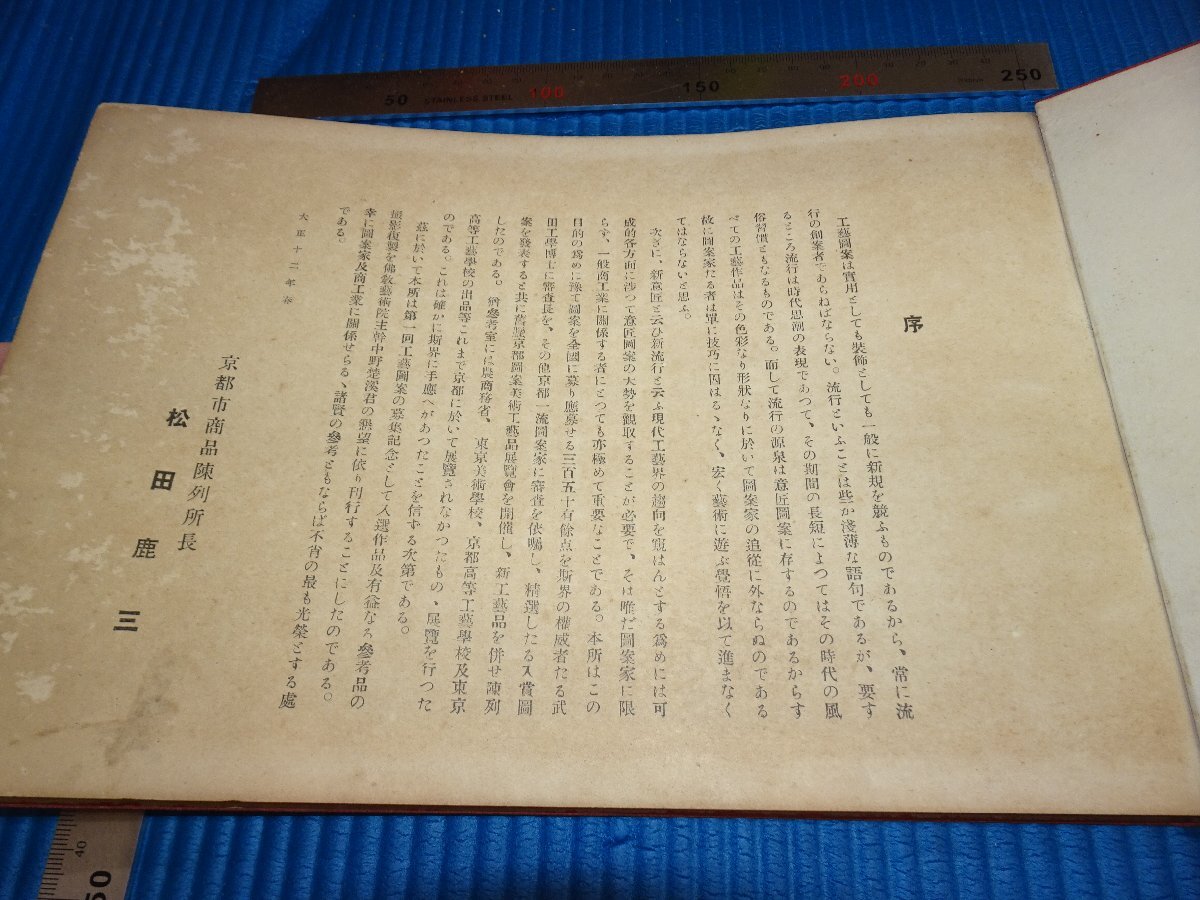 序
工藝圖案は實用としても裝飾としても一般に新規を競ふものであるから、常に流
行の創案者であらねばならない。流行といふことは些か淺薄な語句であるが、要す
るところ流行は時代思潮の表現であつて、その期間の長短によつてはその時代の風
俗習慣ともなるものである。而して流行の源泉は意匠圖案に存するのであるからす
べての工藝作品はその色彩なり形狀なりに於いて圖案家の追從に外ならぬのである
故に圖案家たる者は單に技巧に囚はるゝなく、宏く藝術に遊ぶ覺悟を以て進まなく
てはならないと思ふ。
次ぎに、新意匠と云ひ新流行と云ふ現代工藝界の趨向を窺はんとする爲めには可
成的各方面に涉つて意匠圖案の大勢を觀取することが必要で、そは唯だ圖案家に限
らず、一般商工業に關係する者にとつても亦極めて重要なことである。本所はこの
目的の爲めに豫て圖案を全國に募り應募せる三百五十有餘点を斯界の權威者たる武
田工學博士に審査長を、その他京都一流圖案家に審査を依囑し、精選したる入賞圖
案を發表すると共に舊歷京都圖案美術工藝品展覽會を開催し、新工藝品を併せ陳列
したのである。猶參考室には農商務省、東京美術學校、京都高等工藝學校及東京
高等工藝學校の出品等これまで京都に於いて展覽されなかつたもの、展覽を行つた
のである。これは確かに斯界に手應へがあつたことを信ずる次第である。
茲に於いて本所は第一回工藝圖案の募集記念として入選作品及有益なる參考品の
撮影復製を佛敎藝術院主幹中野楚溪君の懇望に依り刊行することにしたのである。
幸に圖案家及商工業に關係せらるゝ諸賢の參考ともならば不肖の最も光榮とする處
である。
大正十二年春
京都市商品陳列所長
松田鹿三
STAINLESS STEEL
50
100
150
200
250
40
50